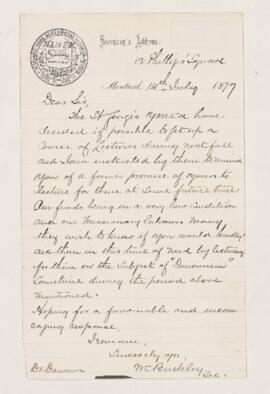 Secretary's Address:
19 Phillips Square
Montreal, 14th July 1877
Dear Sir,
The St George's Y.M.C.A have
decided if possible to get up a
Course of Lectures during next fall
and I am instructed by them to remind
you of a former promise of yours to
lecture for them at some future time.
Our funds being in a very low condition
and our Missionary Labours many,
they wish to know if you would kindly
aid them in this time of need by lecturing
for them on the Subject of
sometime during the period above
mentioned.
Hoping for a favourable and encou-
raging response,
I remain,
Sincerely yrs,
W C Buckley
Sec.
Dr. Dawson